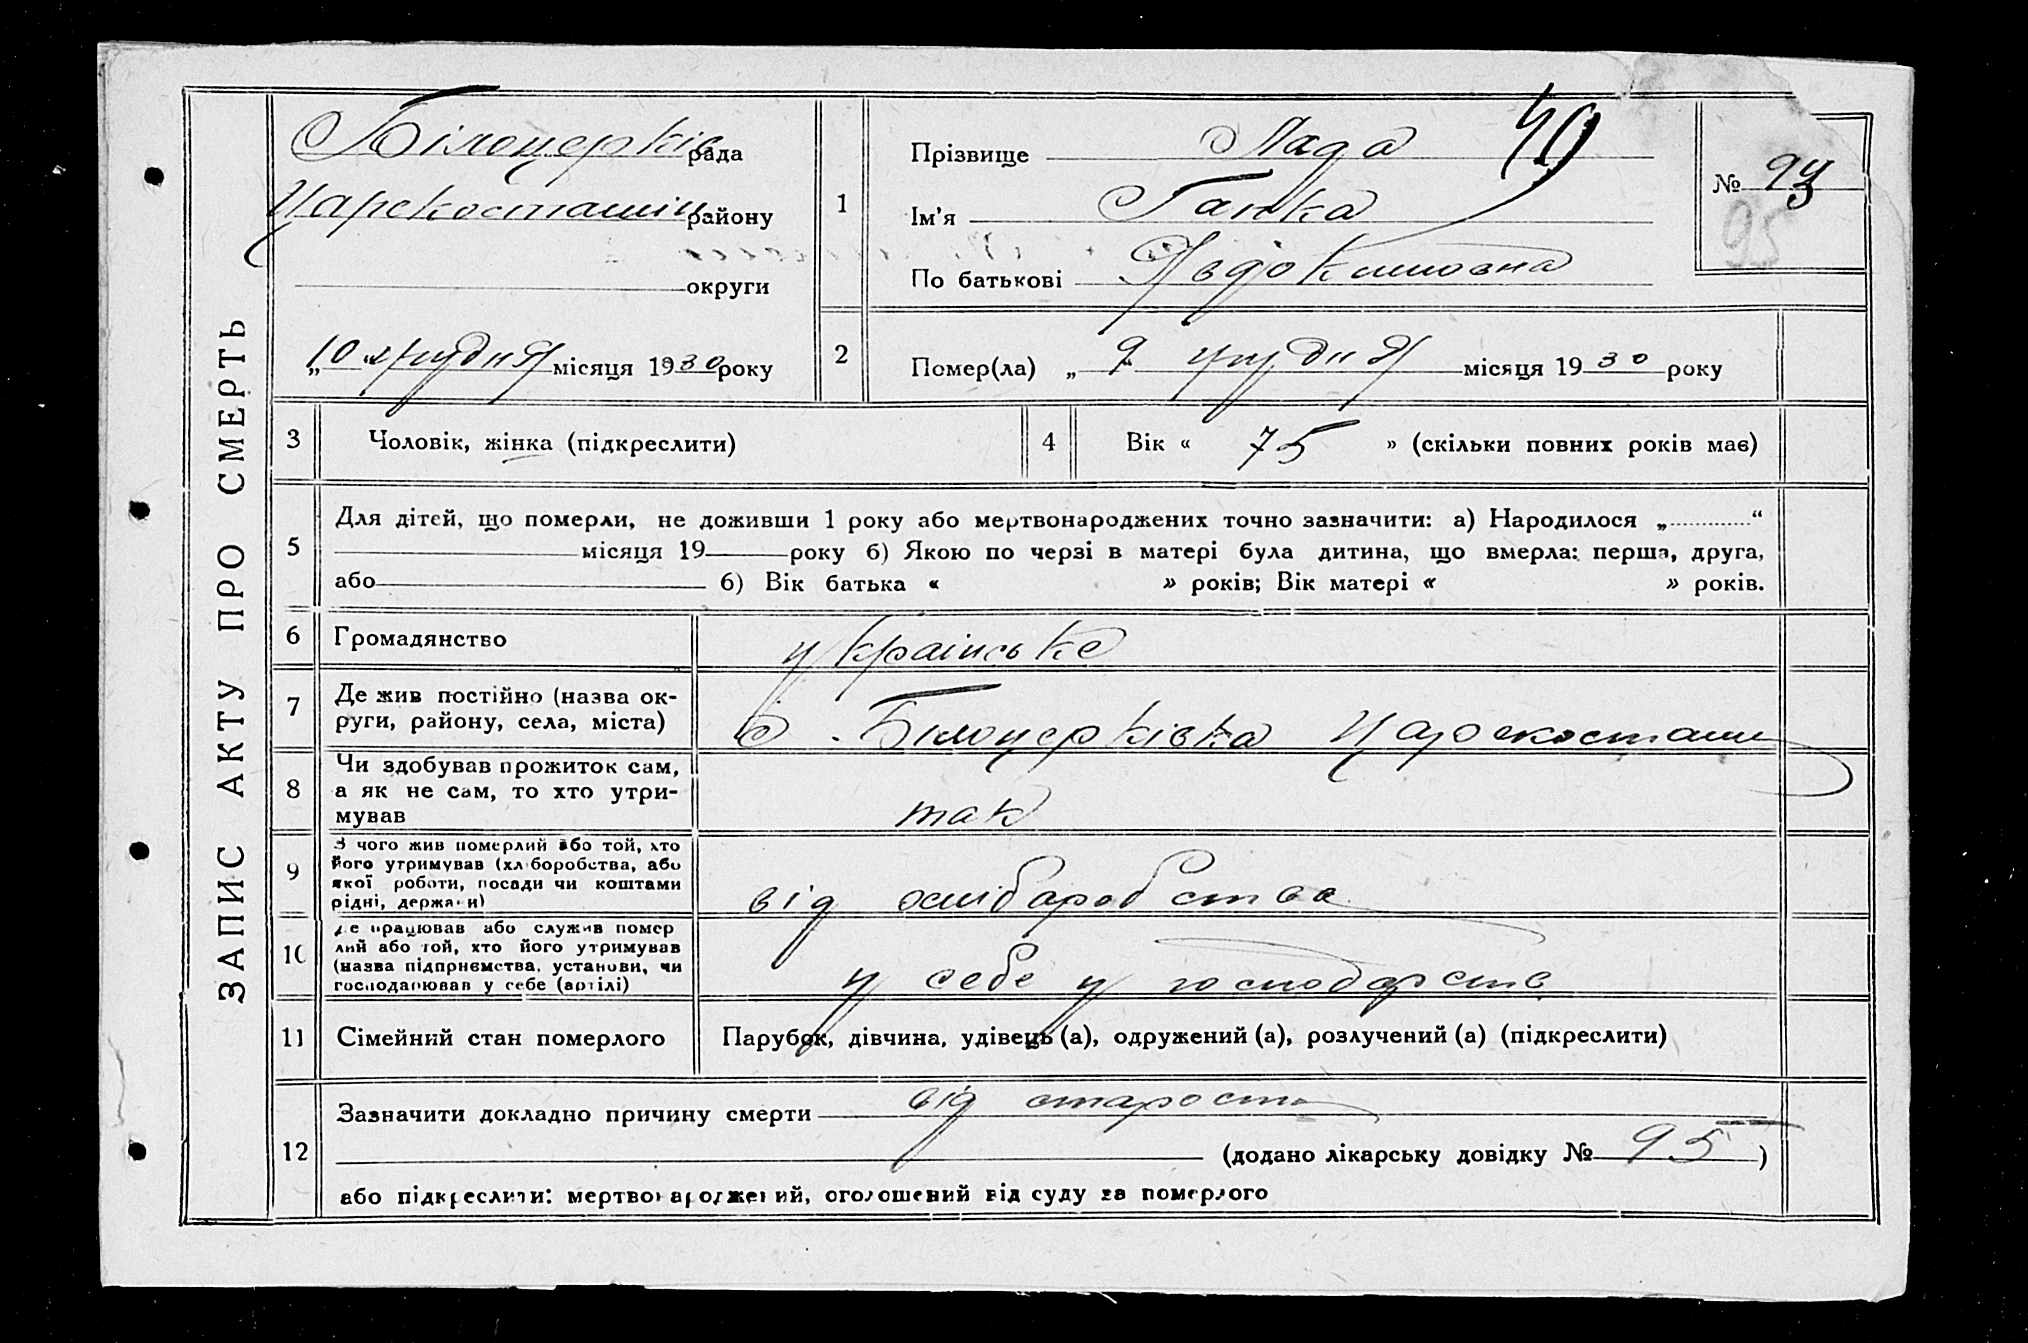 ЗАПИС АКТУ ПРО СМЕРТЬ
Білоцерків рада
Царекосташін району
округи
„10" грудня місяця 1930 року
1
Прізвище Лада 49
Ім'я Ганка
По батькові Явдокимовна
№ 93
95
2
Помер(ла) „ 9 грудня місяця 1930 року
3 Чоловік, жінка (підкреслити)
4 Вік « 75 » (скільки повних років має)
5 Для дітей, що померли, не доживши 1 року або мертвонароджених точно зазначити: а) Народилося „ “
місяця 19 року б) Якою по черзі в матері була дитина, що вмерла: перша, друга,
або б) Вік батька « » років; Вік матері « » років.
6 Громадянство українське
7 Де жив постійно (назва ок-
руги, району, села, міста) с. Білоцерківка Царекосташ
8 Чи здобував прожиток сам,
а як не сам, то хто утри-
мував так
9 З чого жив померлий або той, хто
його утримував (хліборобства, або
якої роботи, посади чи коштами
рідні, держави) від хлібаробства
10 Де працював або служив помер
лий або той, хто його утримував
(назва підприємства, установи, чи
господарював у себе (артілі) у себе у господарстві
11 Сімейний стан померлого Парубок, дівчина, удівець (а), одружений (а), розлучений (а) (підкреслити)
12 Зазначити докладно причину смерти від старости
(додано лікарську довідку № 95 )
або підкреслити: мертвонароджений, оголошений від суду за померлого